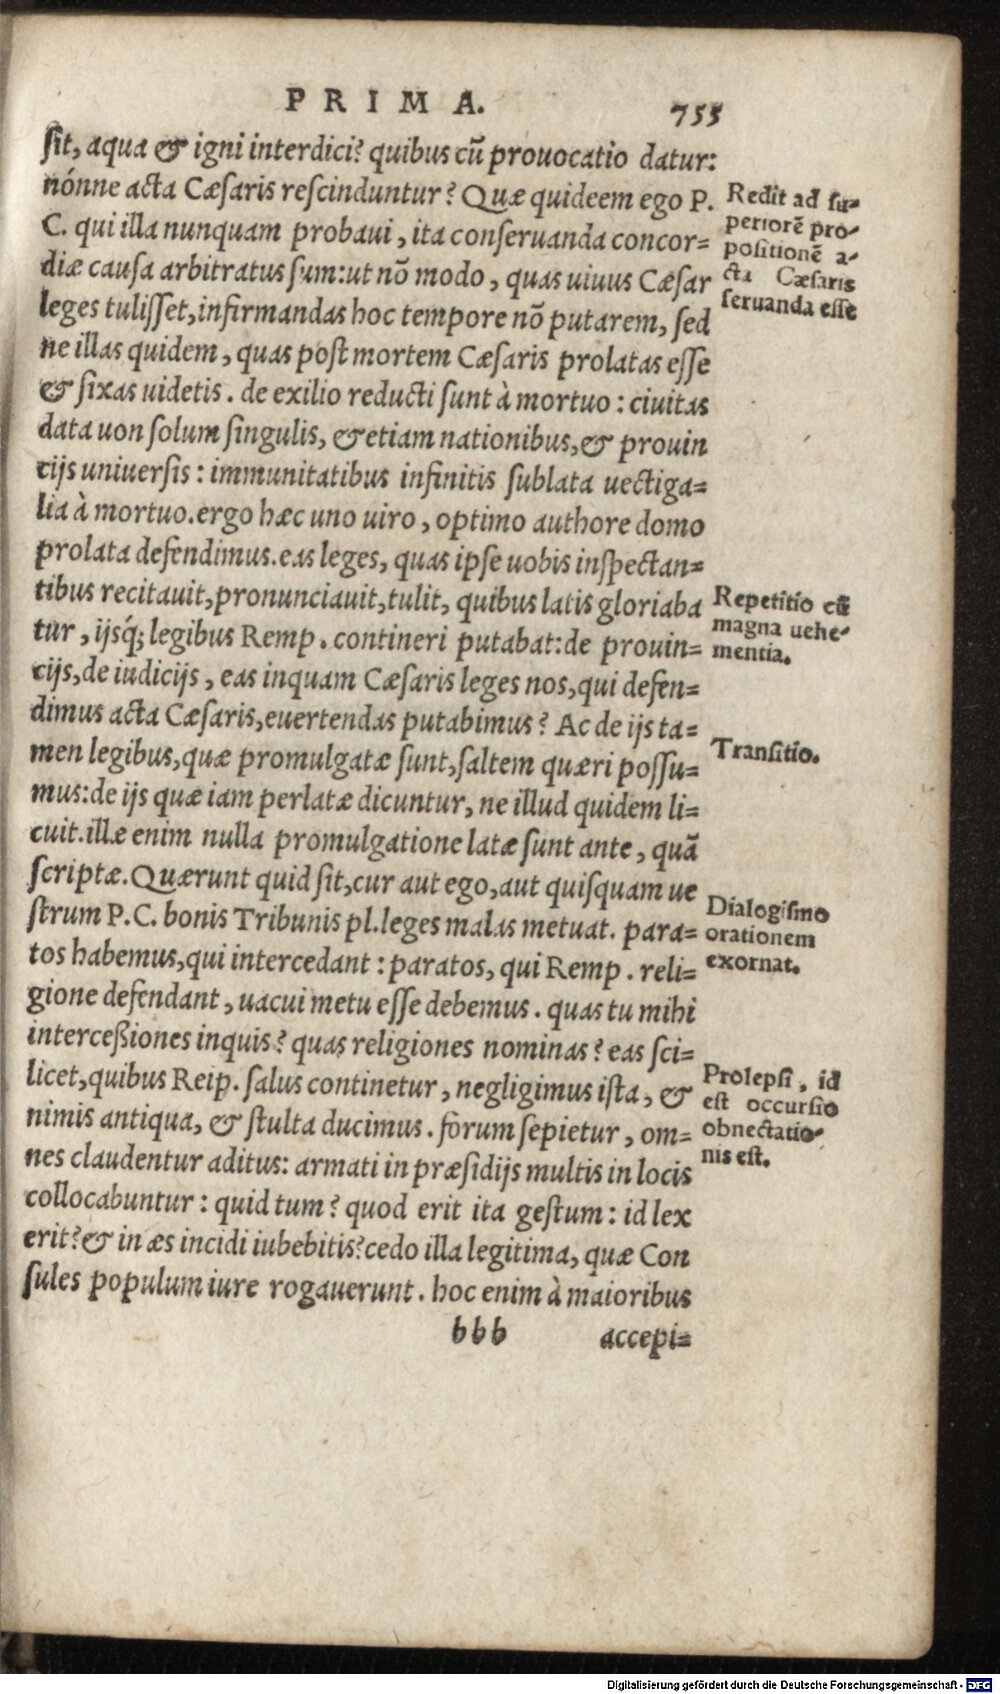 PRIMA. 755
ſit, aqua & igni interdici? quibus cũ prouocatio datur:
nónne acta Cæſaris reſcinduntur? Quæ quideem ego P.
C. qui illa nunquam probaui, ita conſeruanda concor=
diæ cauſa arbitratus ſum: ut nõ modo, quas uiuus Cæſar
leges tuliſſet, infirmandas hoc tempore nõ putarem, ſed
ne illas quidem, quas poſt mortem Cæſaris prolatas eſſe
& ſixas uidetis. de exilio reducti ſunt à mortuo: ciuitas
data uon ſolum ſingulis, & etiam nationibus, & prouin
cijs uniuerſis: immunitatibus infinitis ſublata uectiga=
lia à mortuo. ergo hæc uno uiro, optimo authore domo
prolata defendimus. eas leges, quas ipſe uobis inſpectan=
tibus recitauit, pronunciauit, tulit, quibus latis gloriaba
tur, ijsq́; legibus Remp. contineri putabat: de prouin=
cijs, de iudicijs, eas inquam Cæſaris leges nos, qui defen=
dimus acta Cæſaris, euertendas putabimus? Ac de ijs ta=
men legibus, quæ promulgatæ ſunt, ſaltem quæri poſſu=
mus: de ijs quæ iam perlatæ dicuntur, ne illud quidem li=
cuit. illæ enim nulla promulgatione latæ ſunt ante, quã
ſcriptæ. Quærunt quid ſit, cur aut ego, aut quiſquam ue
ſtrum P. C. bonis Tribunis pl. leges malas metuat. para=
tos habemus, qui intercedant: paratos, qui Remp. reli=
gione defendant, uacui metu eſſe debemus. quas tu mihi
interceßiones inquis? quas religiones nominas? eas ſci=
licet, quibus Reip. ſalus continetur, negligimus iſta, &
nimis antiqua, & ſtulta ducimus. forum ſepietur, om=
nes claudentur aditus: armati in præſidijs multis in locis
collocabuntur: quid tum? quod erit ita geſtum: id lex
erit? & in æs incidi iubebitis? cedo illa legitima, quæ Con
ſules populum iure rogauerunt. hoc enim à maioribus
bbb accepi=
Redit ad ſu=
periorẽ pro=
poſitionẽ a=
cta Cæſaris
ſeruanda eſſe
Repetitio cũ
magna uehe=
mentia.
Tranſitio.
Dialogiſmo
orationem
exornat.
Prolepſi, id
eſt occurſio
obnectatio=
nis eſt.
Digitalisierung gefördert durch die Deutsche Forschungsgemeinschaft - DFG